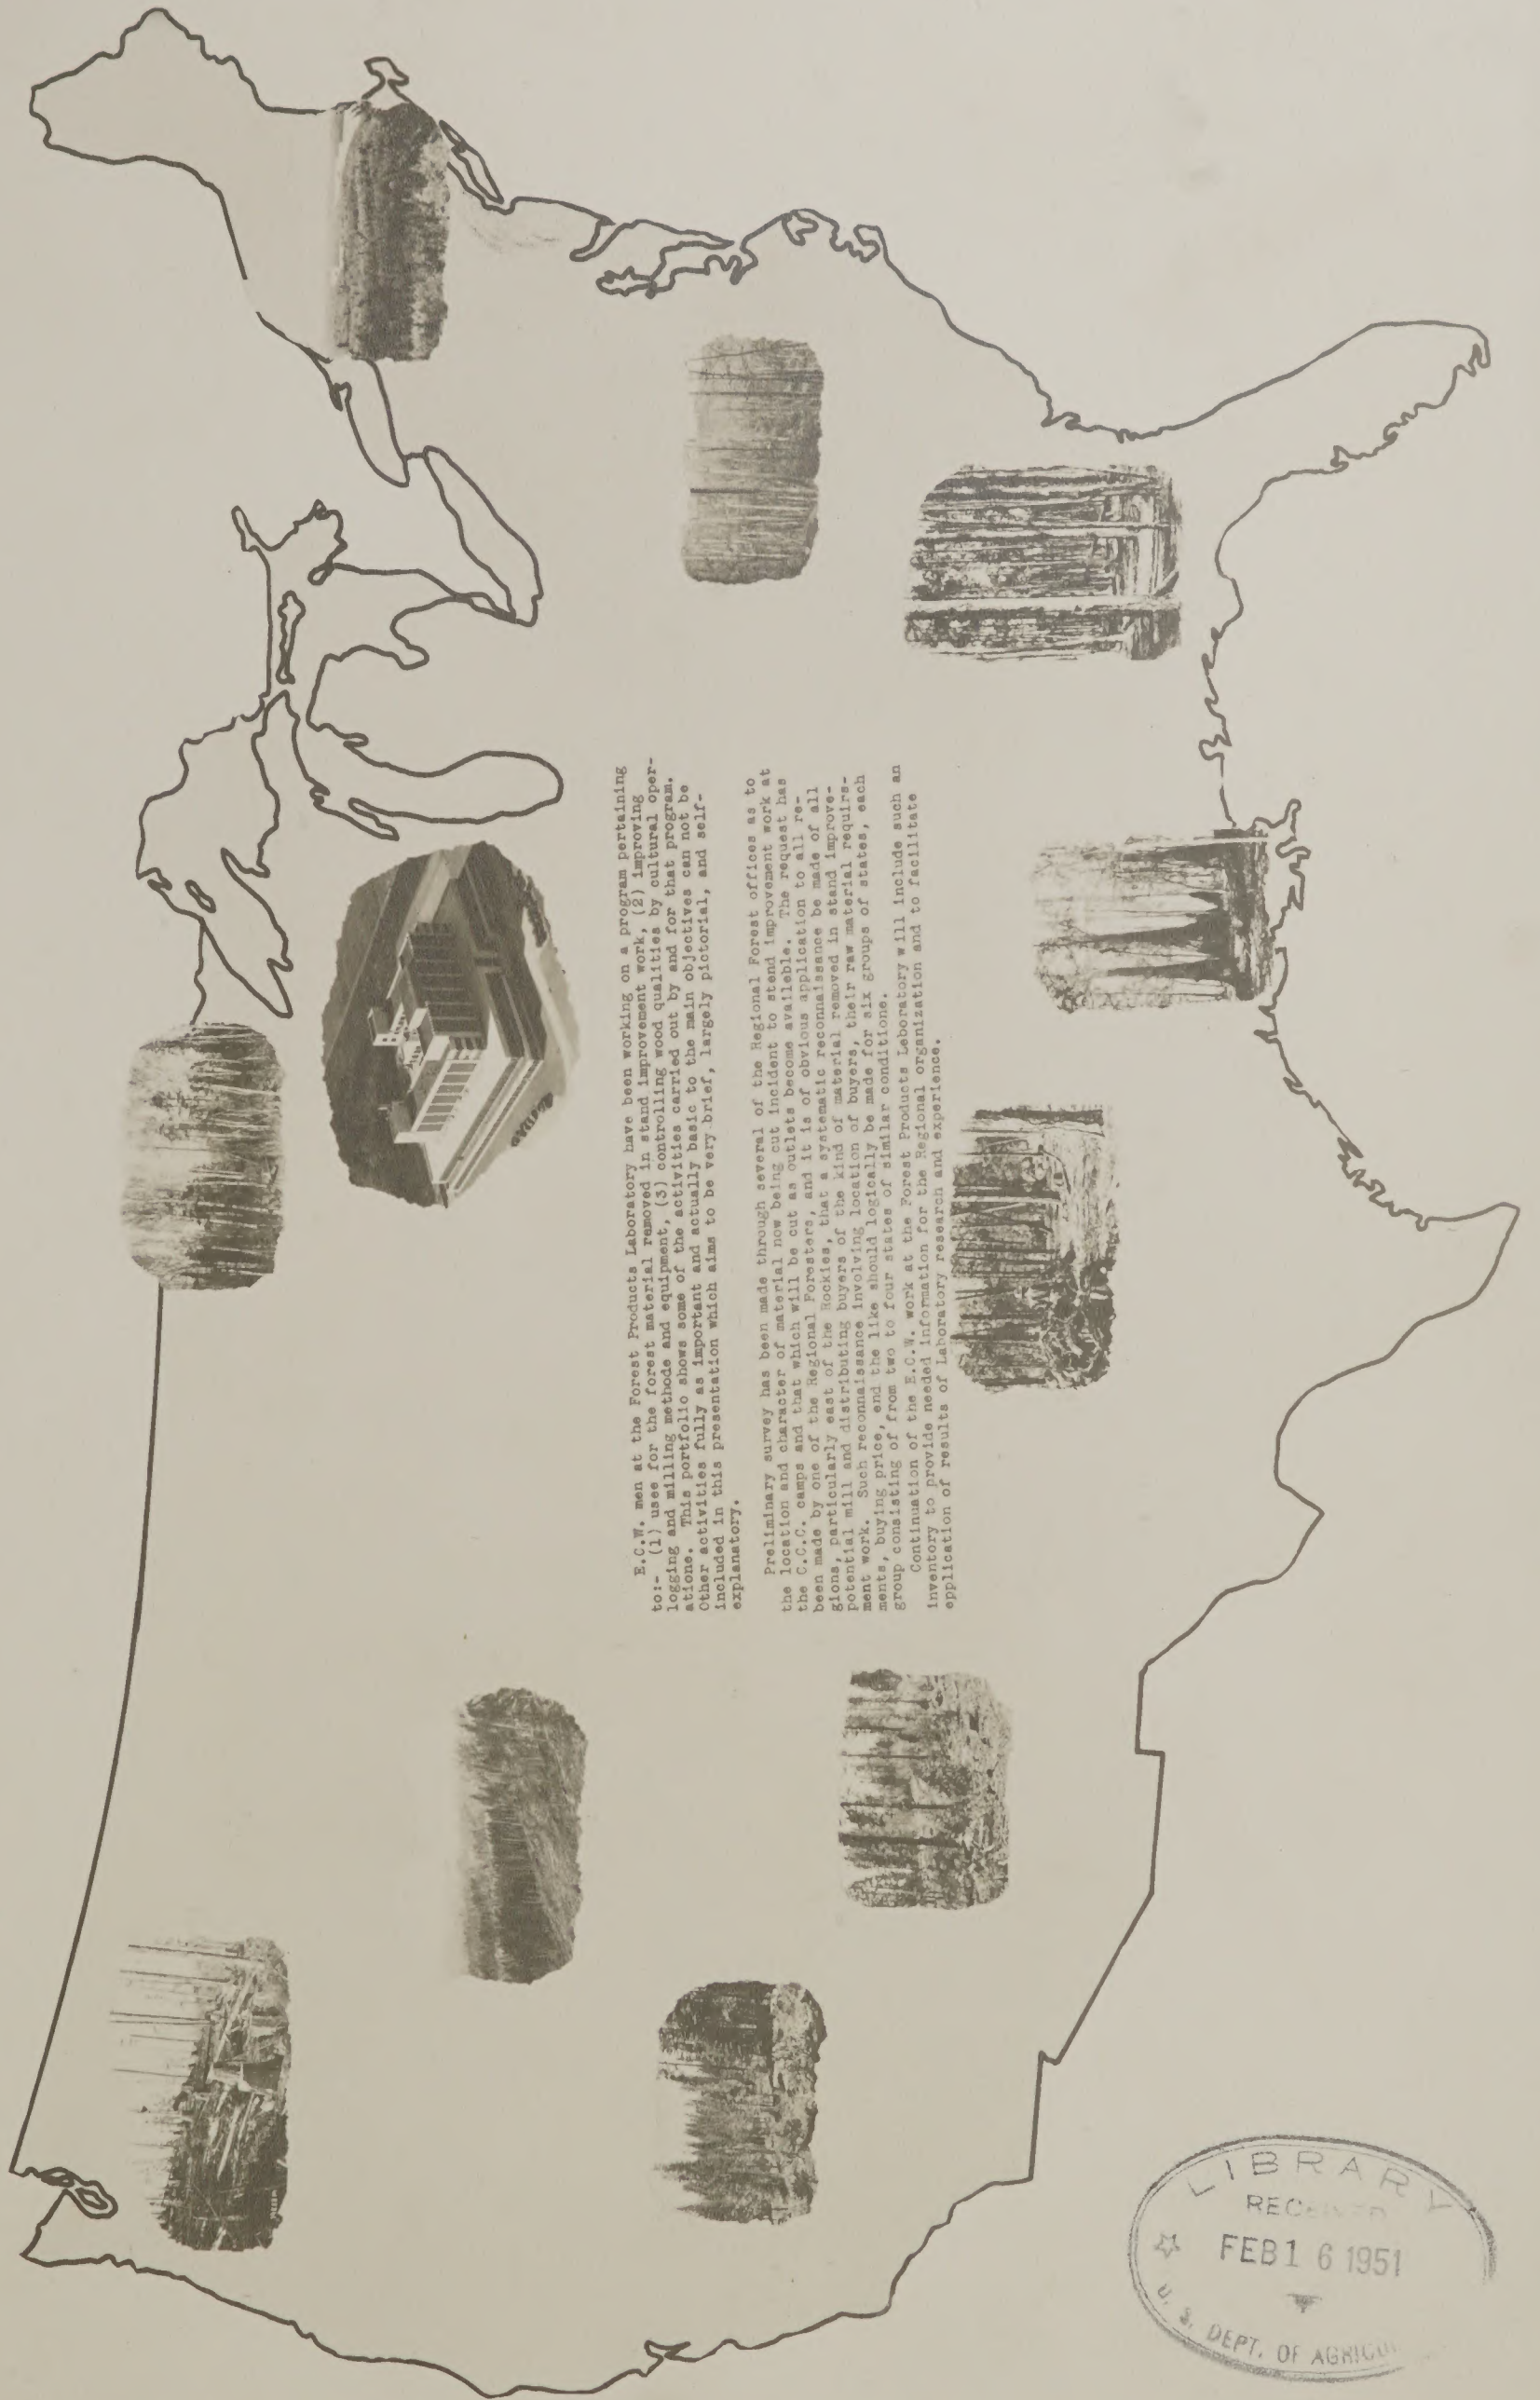 E.C.W. men at the Forest Products Laboratory have been working on a program pertaining
to:- (1) uses for the forest material removed in stand improvement work, (2) improving
logging and milling methode and equipment, (3) controlling wood qualities by cultural oper-
atione. This portfolio shows some of the activities carried out by and for that program.
Other activities fully as important and actually basic to the main objectives can not be
included in this presentation which aims to be very brief, largely pictorial, and self-
explanatory.
Preliminary survey has been made through several of the Regional Forest offices as to
the location and character of material now being cut incident to stend improvement work at
the C.C.C. camps and that which will be cut as outlets become available. The request has
been made by one of the Regional Foresters, and it is of obvious application to all re-
gions, particularly east of the Rockies, that a systematic reconnaissance be made of all
potential mill and distributing buyers of the kind of material removed in stand improve-
ment work. Such reconnaissance involving location of buyers, their raw material requirs-
ments, buying price, end the like should logically be made for six groups of states, each
group consisting of from two to four states of similar conditione.
Continuation of the E.C.W. work at the Forest Products Leboratory will include such an
inventory to provide needed information for the Regional organization and to facilitate
epplication of results of Laboratory research and experience.
LIBRARY
RECEIVED
FEB 1 6 1951
U. S. DEPT. OF